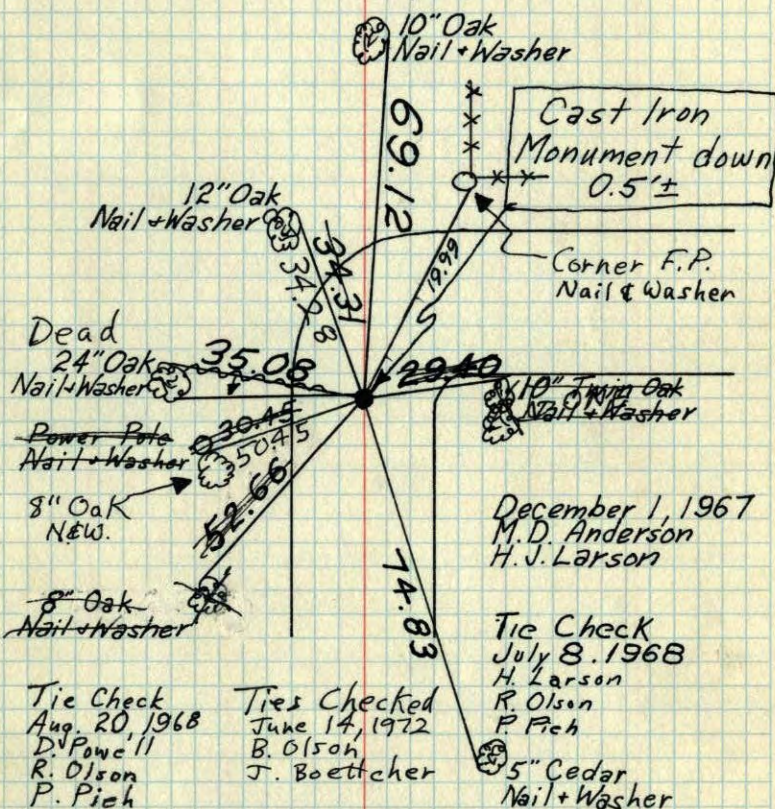 10" Oak
Nail + Washer
69.12
Cast Iron
Monument down
0.5'±
12" Oak
Nail + Washer
34.31
34.28
19.99
Corner F.P.
Nail & Washer
Dead
24" Oak
Nail + Washer
35.08
29.40
10" Twin Oak
Nail + Washer
Power Pole
Nail + Washer
30.45
50.45
8" Oak
N&W.
52.66
8" Oak
Nail + Washer
74.83
December 1, 1967
M.D. Anderson
H.J. Larson
Tie Check
July 8. 1968
H. Larson
R. Olson
P. Pich
Tie Check
Aug. 20, 1968
D. Powell
R. Olson
P. Pich
Ties Checked
June 14, 1972
B. Olson
J. Boettcher
5" Cedar
Nail + Washer